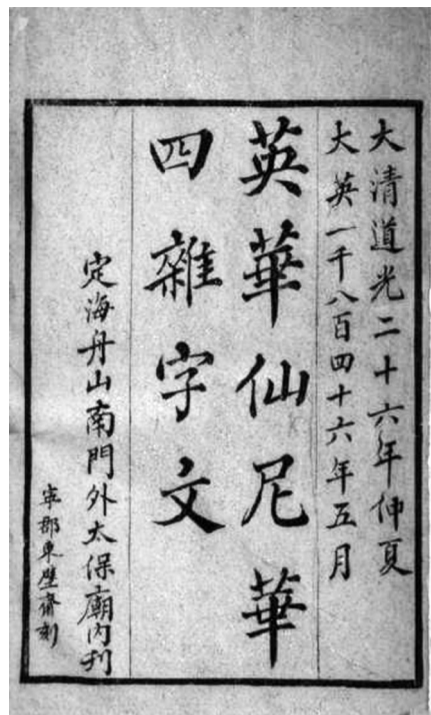 大清道光二十六年仲夏
大英一千八百四十六年五月
英華仙尼華
四雜字文
定海舟山南門外太保廟內刊
寕郡東壁齋刻